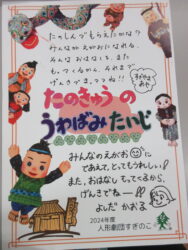 たのしんでもらえたかな？
みんなが えがおになれる、
そんな おはなしを、また
もってくるから、それまで
げんきでまっててね!!
たのきゅうの
うわばみたいじ
みんなのえがおに
であえて、とってもうれしい!
また、おはなし もってくるから、
げんきでねー!
よしだ かおる
2024年度
人形劇団すぎのこ